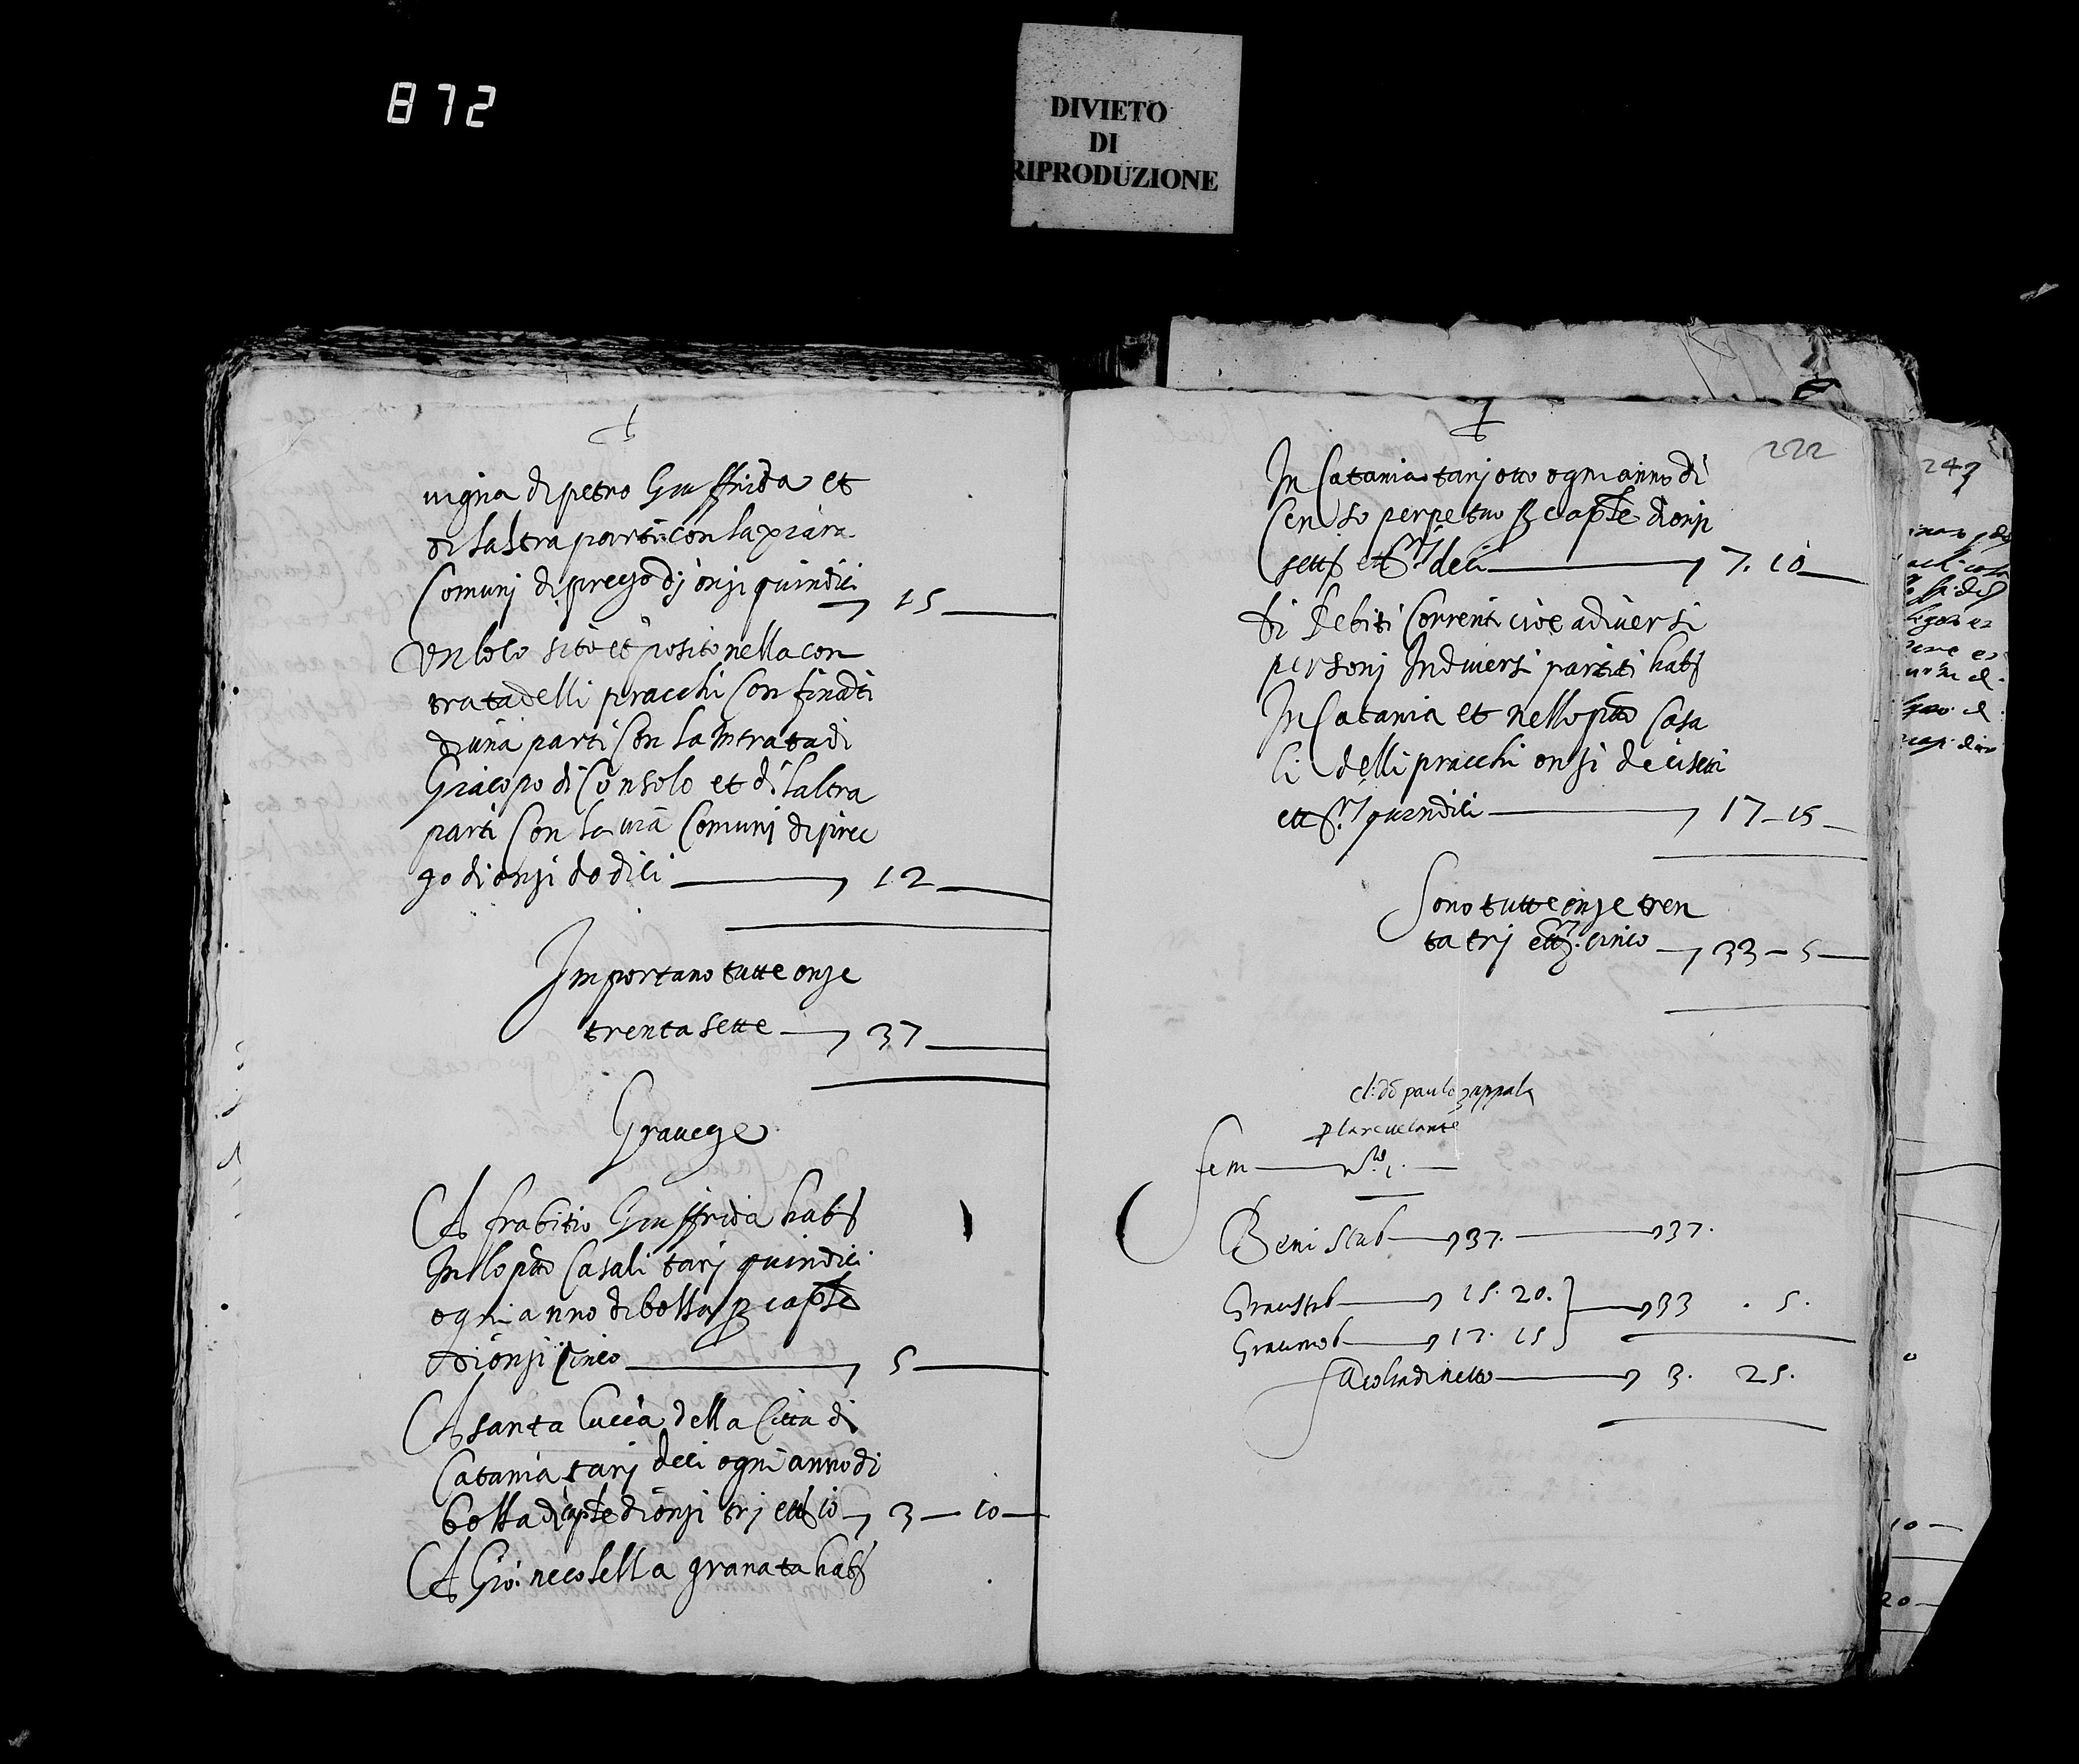 872
DIVIETO
DI
RIPRODUZIONE
vigna di petro Giuffrida et
di laltra parti con la xiara
Comuni di prezo dj onsi quindici
15
Un loco sito et posito nella con
trata delli piracchi Confinati
di una parti Con la Intrata di
Giacopo di Consolo et di laltra
parti Con la via Comuni di prec
zo di onsi dodici 12
Importano tutte onze
trenta sette 37
Graveze
A frabitio Giuffrida habit
In lo ptto Casali tarj quindici
ogni anno di bolla p caple
di onsi Cinco 5
A santa lucia della Citta di
Catania tarj deci ogni anno di
bolla di caple di onsi trj ett 10 3 — 10
A Gio: necolella granata habit
222
In Catania tarj otto ogni anno di
Censo perpetuo p caple di onsi
setti et tt.rj deci 7. 10
di Debiti Correnti cioe a diversi
personi In diversi partiti habit
In Catania et nello ptto Casa
li delli piracchi onsi decisetti
ett.rj quindici 17 — 15
Sono tutte onze tren
ta trj ett. cinco 33 — 5
cl: don paulo zappala
p la revelante
fem n.o 1.
Beni stab 37. 37.
Grav stab 15. 20. 33 . 5.
Grav mob 17. 15
facolta di netto 3. 25.
247
10
20